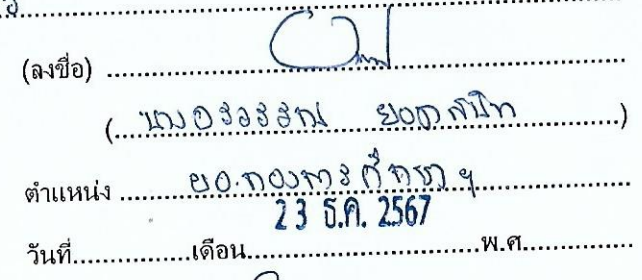 (ลงชื่อ)
(นางอรวรรณ)
ตำแหน่ง ผอ.กองการศึกษาฯ
23 ธ.ค. 2567
วันที่ เดือน พ.ศ.